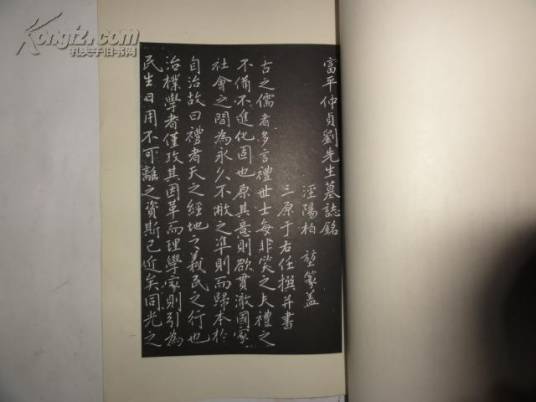 Kongfz.com
孔夫子旧书网
富平仲貞劉先生墓誌銘
涇陽柏堃篆蓋
三原于右任撰并書
古之儒者多言禮世士每非笑之夫禮之
不備不進化固也原其意則欲貫澈國家
社會之間為永久不敝之準則而歸本於
自治故曰禮者天之經地之義民之行也
治樸學者僅攷其因革而理學家則引為
民生日用不可離之資斯已近矣同光之